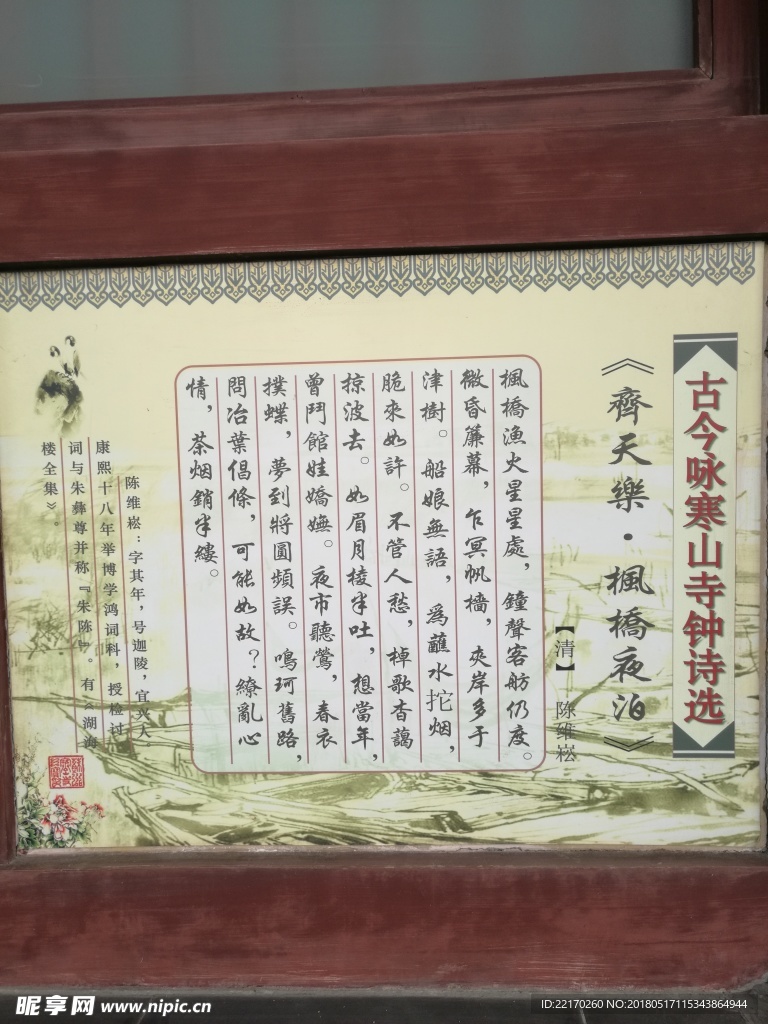 古今咏寒山寺钟诗选
《齊天樂·楓橋夜泊》
【清】 陈维崧
楓橋漁火星星處，鐘聲客舫仍度。
微昏簾幕，乍冥帆檣，夾岸多于
津樹。船娘無語，爲蘸水拕烟，
脆來如許。不管人愁，棹歌杳藹
掠波去。如眉月棱半吐，想當年，
曾鬥館娃嬌嫵。夜市聽鶯，春衣
撲蝶，夢到將圓頻誤。鳴珂舊路，
問冶葉倡條，可能如故？繚亂心
情，茶烟銷半縷。
陈维崧：字其年，号迦陵，宜兴人。
康熙十八年举博学鸿词科，授检讨。
词与朱彝尊并称『朱陈』。有《湖海
楼全集》。
昵享网 www.nipic.cn
ID:22170260 NO:20180517115343864944